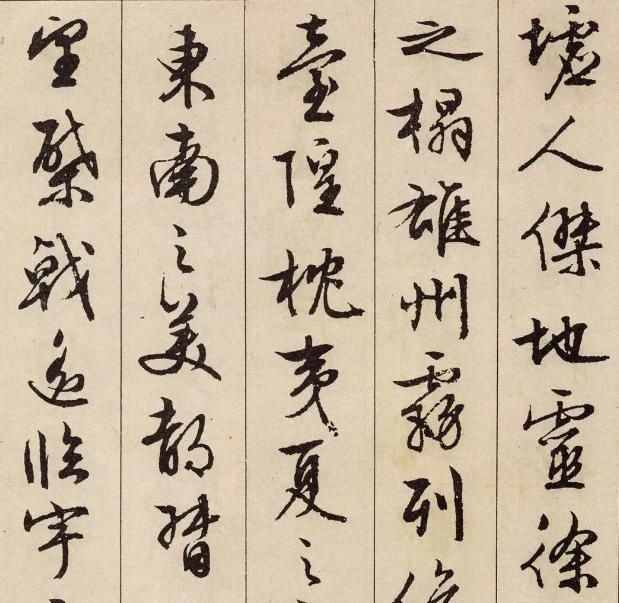 墟人傑地靈徐
之榻雄州霧列
臺隍枕夷夏之
東南之美都督
望棨戟遙臨宇